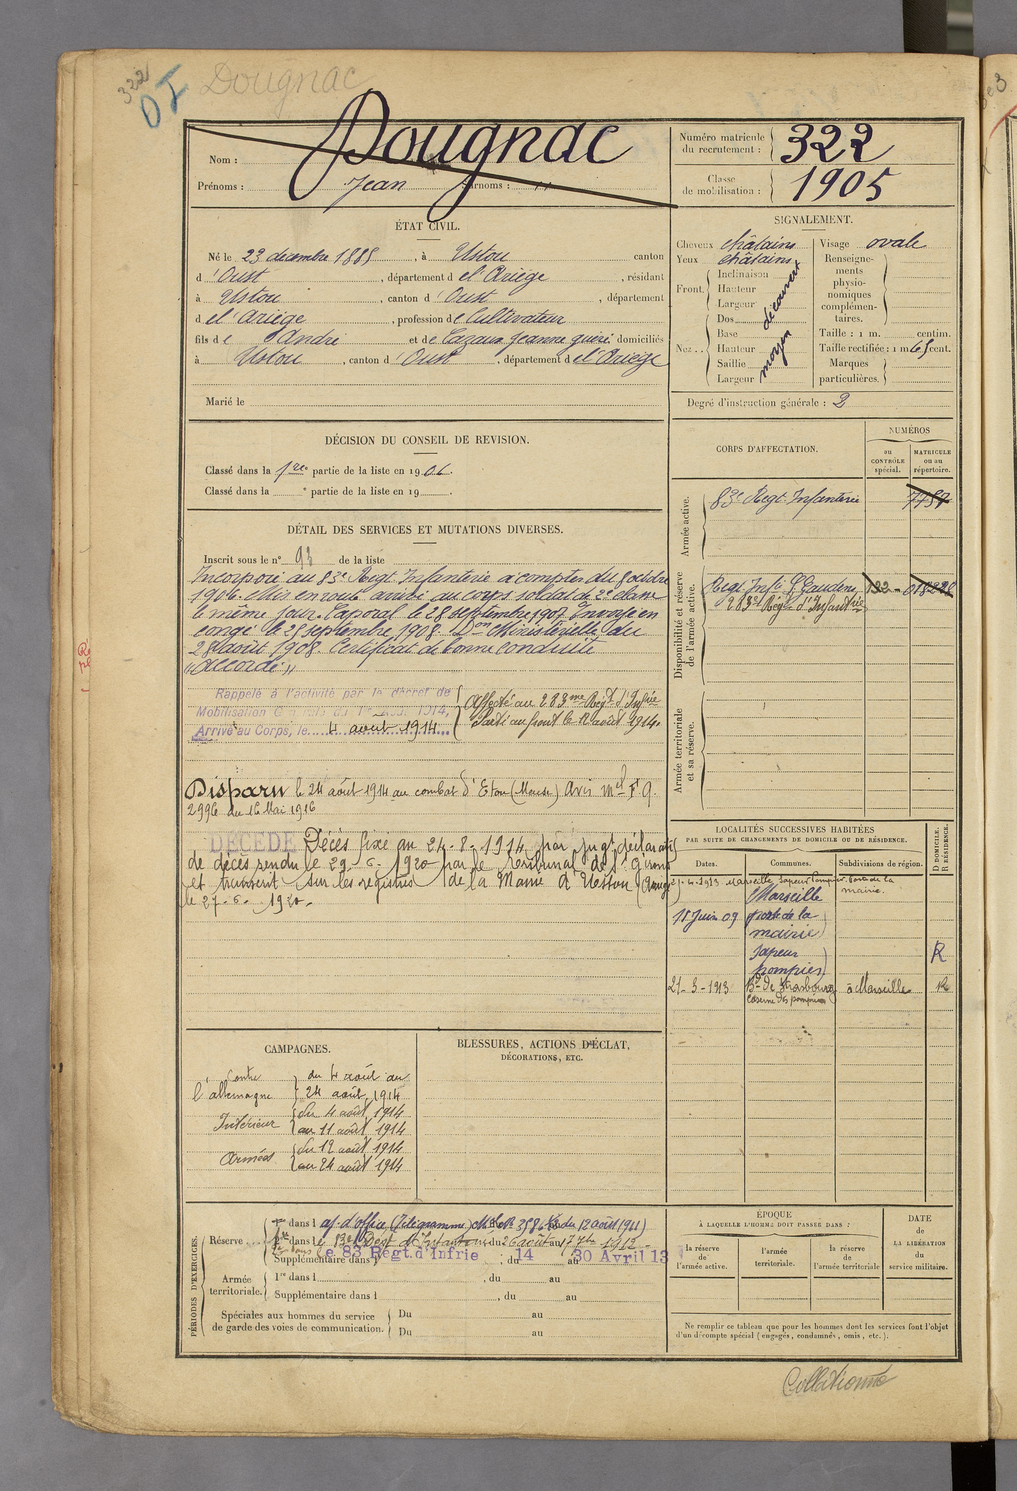 322
DI
Dougnac
Nom : Dougnac
Prénoms : Jean Surnoms :
Numéro matricule du recrutement : 322
Classe de mobilisation : 1905
ÉTAT CIVIL.
Né le 23 décembre 1885, à Ustou canton
d'Oust, département de l'Ariège, résidant
à Ustou, canton d'Oust, département
de l'Ariège, profession de Cultivateur
fils de André et de Cazaux Jeanne domiciliés
à Ustou, canton d'Oust, département de l'Ariège
Marié le
SIGNALEMENT.
Cheveux châtains
Yeux châtains
Front Inclinaison
Hauteur
Largeur
découvert
Nez Dos
Base
Hauteur
Saillie
Largeur
moyen
Visage ovale
Renseigne-
ments
physio-
nomiques
complémen-
taires.
Taille : 1 m. centim.
Taille rectifiée : 1 m 65 cent.
Marques
particulières.
Degré d'instruction générale : 2
DÉCISION DU CONSEIL DE REVISION.
Classé dans la 1re partie de la liste en 1906.
Classé dans la e partie de la liste en 19 .
CORPS D'AFFECTATION.
NUMÉROS
au CONTRÔLE spécial.
MATRICULE ou au répertoire.
Armée active.
83e Regt Infanterie
Disponibilité et réserve de l'armée active.
Regt Infie St Gaudens 132
283e Régt d'Infanterie
Armée territoriale et sa réserve.
DÉTAIL DES SERVICES ET MUTATIONS DIVERSES.
Inscrit sous le n° 93 de la liste
Incorporé au 83e Regt Infanterie à compter du 8 octobre
1906. Mis en route arrivé au corps soldat de 2e classe
le même jour. Caporal le 28 septembre 1907. Envoyé en
congé le 25 septembre 1908. Don Ministérielle du
28 août 1908. Certificat de bonne conduite
"accordé"
Rappelé à l'activité par le décret de
Mobilisation Générale du 1er août 1914,
Arrivé au Corps, le 4 août 1914
Affecté au 283me Régt d'Infie
Parti au front le 12 août 1914.
Disparu le 24 août 1914 au combat d'Eton (Meuse) Avis Mel F 9.
2996 du 16 Mai 1916
DÉCÉDÉ Décès fixé au 24-8-1914 par jugt déclaratif
de décès rendu le 29-6-1920 par le Tribunal de St Girons
et transcrit sur les registres de la Mairie d'Ustou (Ariège)
le 27-6-1920.
LOCALITÉS SUCCESSIVES HABITÉES
PAR SUITE DE CHANGEMENTS DE DOMICILE OU DE RÉSIDENCE.
Dates. Communes. Subdivisions de région. D. DOMICILE. R. RÉSIDENCE.
1913 Marseille Sapeur Pompier Poste de la mairie.
15 Juin 09 Marseille
poste de la
mairie
sapeur
pompier R
21-3-1913 Bd de Strasbourg à Marseille R
Caserne des pompiers
CAMPAGNES.
Contre l'Allemagne du 4 août au
24 août 1914
Intérieur du 4 août 1914
au 11 août 1914
Armées du 12 août 1914
au 24 août 1914
BLESSURES, ACTIONS D'ÉCLAT,
DÉCORATIONS, ETC.
PÉRIODES D'EXERCICES.
Réserve
dans l af. d'office (Télégramme) du 12 août 1911)
dans le 83e Regt d'Infanterie du 26 août au 17 7bre 1912
Supplémentaire dans le 83 Régt. d'Infrie du 14 au 30 Avril 13
Armée territoriale.
1re dans l , du au
Supplémentaire dans l , du au
Spéciales aux hommes du service
de garde des voies de communication.
Du au
Du au
ÉPOQUE
À LAQUELLE L'HOMME DOIT PASSER DANS :
la réserve de l'armée active.
l'armée territoriale.
la réserve de l'armée territoriale
DATE
DE LA LIBÉRATION
du
service militaire.
Ne remplir ce tableau que pour les hommes dont les services font l'objet
d'un décompte spécial (engagés, condamnés, omis, etc.).
Collationné